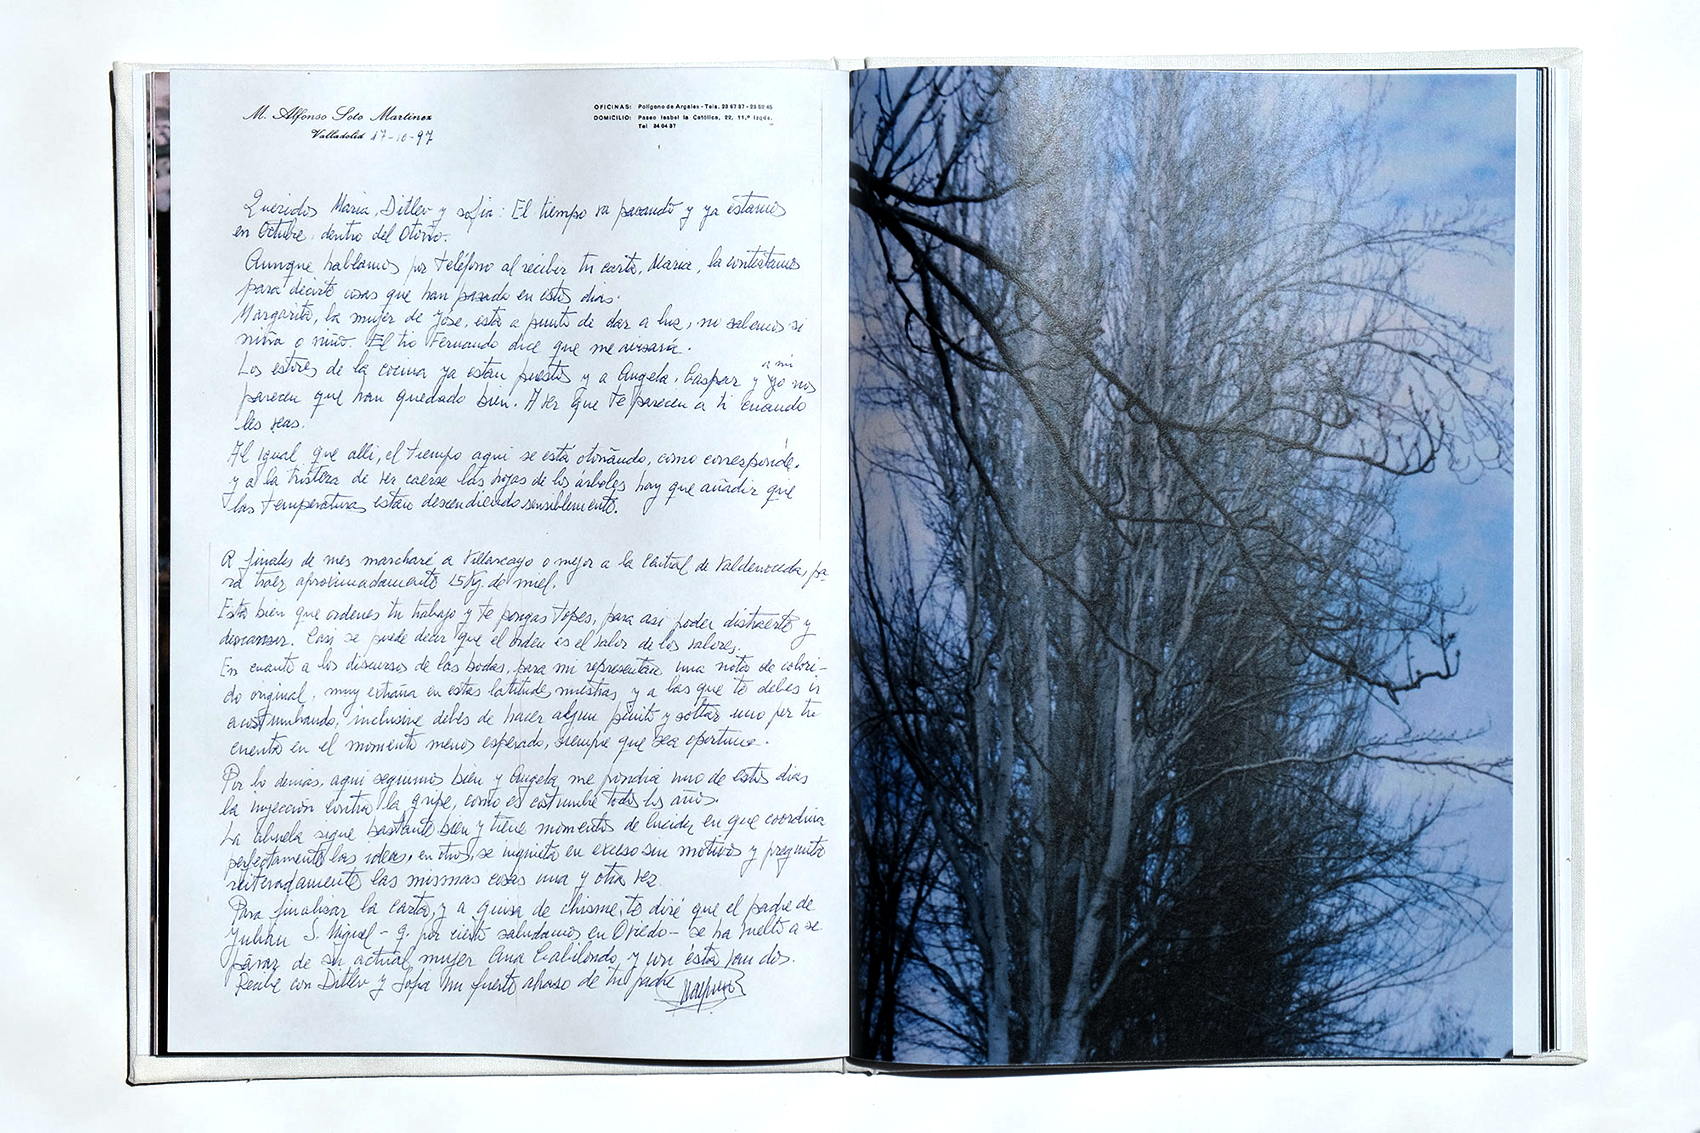 M. Alfonso Soto Martinez
Valladolid 17-10-97
OFICINAS: Polígono de Argales - Tels. 23 67 87 - 23 52 45
DOMICILIO: Paseo Isabel la Católica, 22, 11.º Izqda.
Tel 34 04 37
Queridos Maria, Ditlev y Sofia: El tiempo va pasando y ya estamos
en Octubre, dentro del Otoño.
Aunque hablamos por teléfono al recibir tu carta, Maria, la contestamos
para decirte cosas que han pasado en estos dias.
Margarita, la mujer de Jose, está a punto de dar a luz, no sabemos si
niña o niño. El tio Fernando dice que me avisará.
Los estores de la cocina ya están puestos y a Angela, Gaspar y a mi
yo nos
parecen que han quedado bien. A ver que te parecen a ti cuando
les veas.
Al igual que alli, el tiempo aqui se está otoñando, como corresponde.
y a la tristeza de ver caerse las hojas de los árboles hay que añadir que
las temperaturas estan descendiendo sensiblemente.
A finales de mes marcharé a Villarcayo o mejor a la Central de Valdenoceda, pa-
ra traer aproximadamente 15 Kg. de miel.
Está bien que ordenes tu trabajo y te pongas topes, para asi poder distraerte y
descansar. Casi se puede decir que el orden es el valor de los valores.
En cuanto a los discursos de las bodas, para mi representan una nota de colori-
do original, muy extraña en estas latitudes nuestras, y a las que te debes ir
acostumbrando, inclusive debes de hacer algun pinito y soltar uno por tu
cuenta en el momento menos esperado, siempre que sea oportuno.
Por lo demás, aqui seguimos bien y Angela me pondrá uno de estos dias
la inyección contra la gripe, como es costumbre todos los años.
La abuela sigue bastante bien y tiene momentos de lucidez en que coordina
perfectamente las ideas, en otros, se inquieta en exceso sin motivos y pregunta
reiteradamente las mismas cosas una y otra vez.
Para finalizar la carta, y a guisa de chisme, te diré que el padre de
Julián S. Miguel - q. por cierto saludamos en Oviedo - se ha vuelto a se-
parar de su actual mujer Ana Gabilondo, y con ésta van dos.
Recibe con Ditlev y Sofia un fuerte abrazo de tu padre